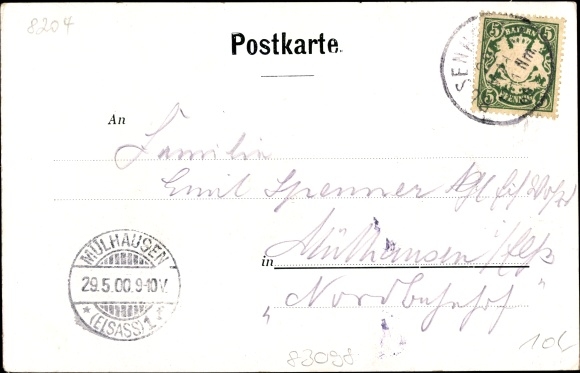 8204
Postkarte.
SENH
5 BAYERN 5
5 PFENNIG 5
Nm.
An
Familie
Emil Spenner
in Mülhausen i/Els
"Nordbahnhof"
MÜLHAUSEN
29.5.00.9-10V.
* (ELSASS) 1 *
83098